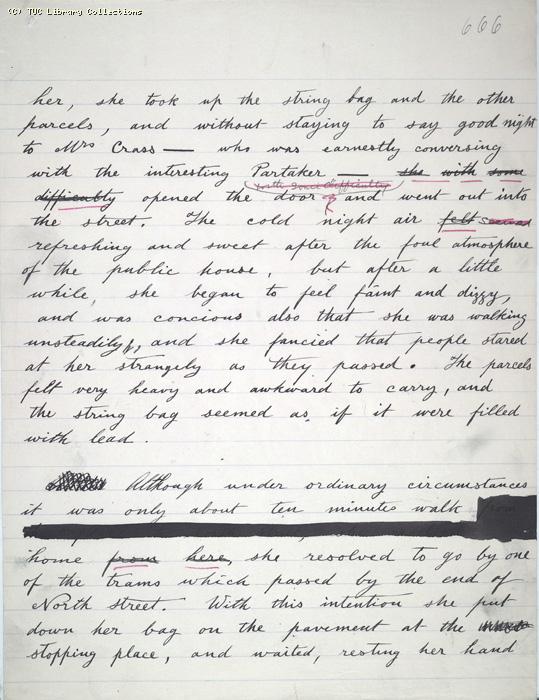 (C) TUC Library Collections
666
her, she took up the string bag and the other
parcels, and without staying to say good night
to Mrs Crass — who was earnestly conversing
with the interesting Partaker — she with some
with some difficulty
difficulty opened the door and went out into
the street. The cold night air felt seemed
refreshing and sweet after the foul atmosphere
of the public house, but after a little
while, she began to feel faint and dizzy,
and was concious also that she was walking
unsteadily, and she fancied that people stared
at her strangely as they passed. The parcels
felt very heavy and awkward to carry, and
the string bag seemed as if it were filled
with lead.
Although under ordinary circumstances
it was only about ten minutes walk from
home from here, she resolved to go by one
of the trams which passed by the end of
North street. With this intention she put
down her bag on the pavement at the
stopping place, and waited, resting her hand